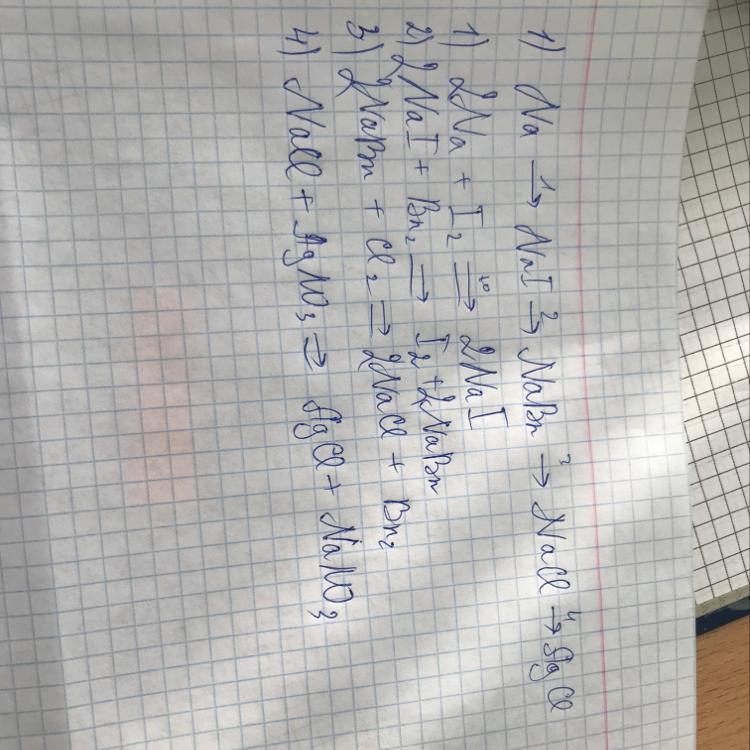 1) Na →¹ NaI →² NaBr →³ NaCl →⁴ AgCl
1) 2Na + I₂ →ᵗ° 2NaI
2) 2NaI + Br₂ → I₂ + 2NaBr
3) 2NaBr + Cl₂ → 2NaCl + Br₂
4) NaCl + AgNO₃ → AgCl + NaNO₃